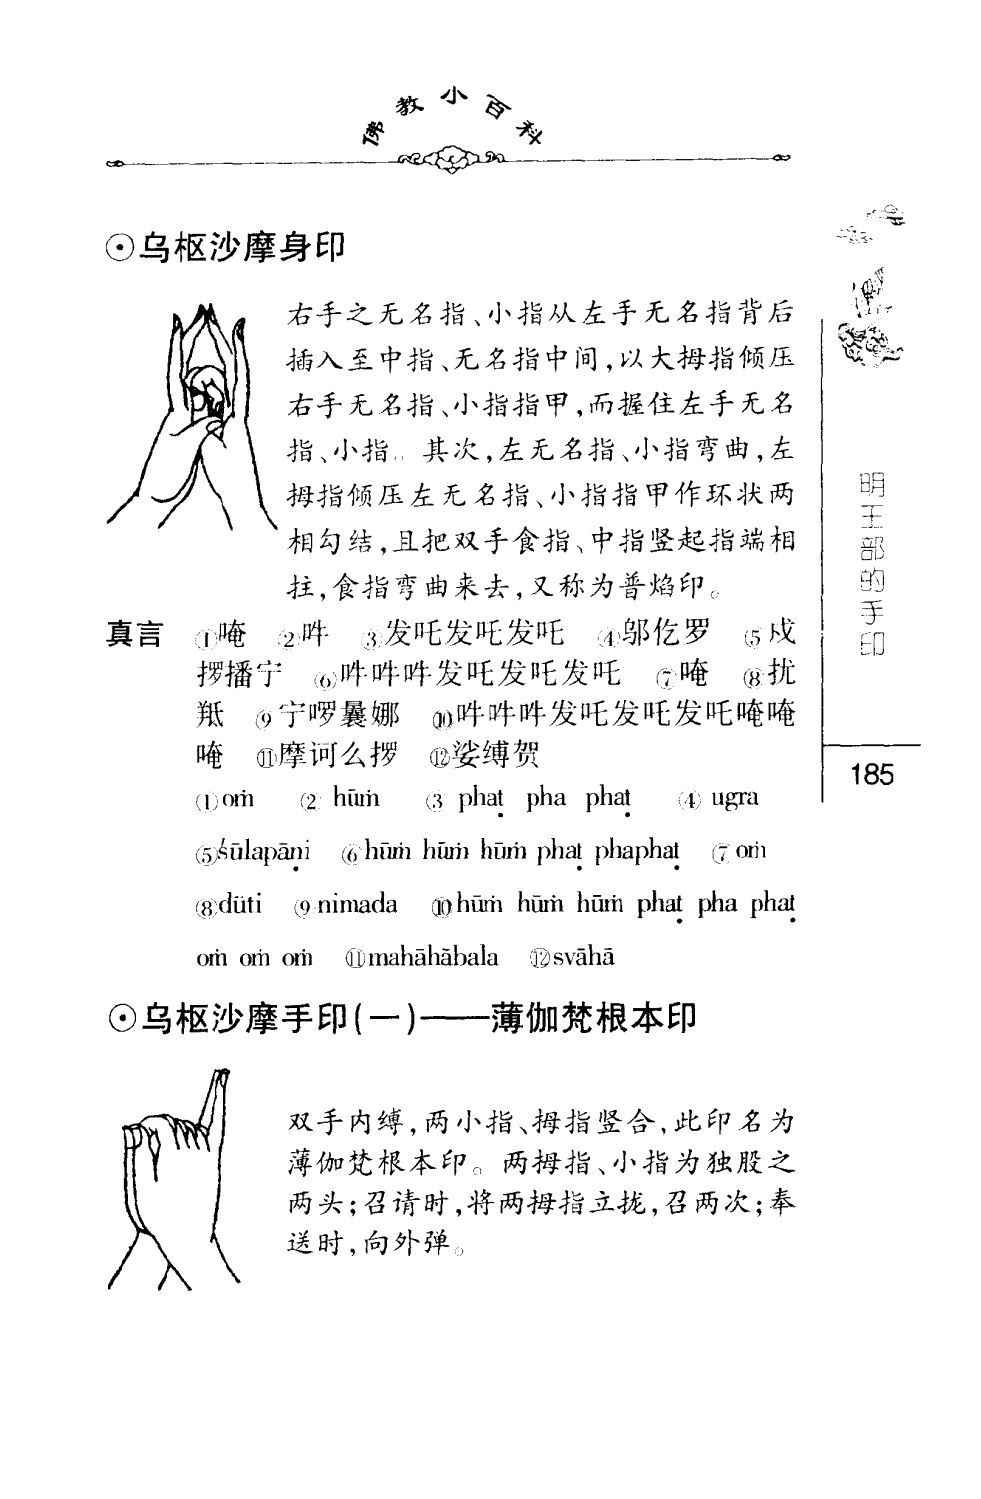 佛教小百科
⊙乌枢沙摩身印
右手之无名指、小指从左手无名指背后
插入至中指、无名指中间,以大拇指倾压
右手无名指、小指指甲,而握住左手无名
指、小指。其次,左无名指、小指弯曲,左
拇指倾压左无名指、小指指甲作环状两
相勾结,且把双手食指、中指竖起指端相
拄,食指弯曲来去,又称为普焰印。
真言 ①唵 ②吽 ③发吒发吒发吒 ④邬仡罗 ⑤戍
攞播宁 ⑥吽吽吽发吒发吒发吒 ⑦唵 ⑧扰
羝 ⑨宁啰曩娜 ⑩吽吽吽发吒发吒发吒唵唵
唵 ⑪摩诃么攞 ⑫娑缚贺
①oṁ ②hūṁ ③phaṭ pha phaṭ ④ugra
⑤śūlapāṇi ⑥hūṁ hūṁ hūṁ phaṭ phaphaṭ ⑦oṁ
⑧düti ⑨nimada ⑩hūṁ hūṁ hūṁ phaṭ pha phaṭ
oṁ oṁ oṁ ⑪mahāhābala ⑫svāhā
⊙乌枢沙摩手印(一)——薄伽梵根本印
双手内缚,两小指、拇指竖合,此印名为
薄伽梵根本印。两拇指、小指为独股之
两头;召请时,将两拇指立拢,召两次;奉
送时,向外弹。
明王部的手印
185